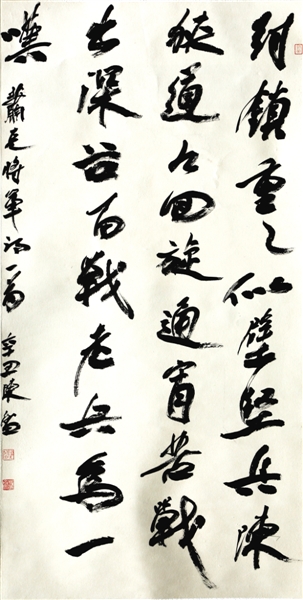 封鎮重重似壁堅兵陳
狹道回旋通宵苦戰
出深谷百戰老兵為一
嘆 蕭克將軍詩一首 辛丑陳